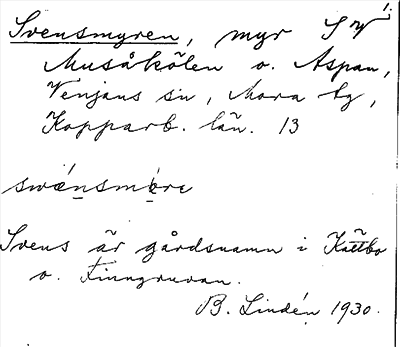 1.
Svensmyren, myr S V
Musåkölen o. Aspan,
Venjans sn, Mora tg,
Kopparb. län. 13
swǽnsmýrɛ
Svens är gårdsnamn i Kättbo
o. Finngruvan.
B. Lindén 1930.